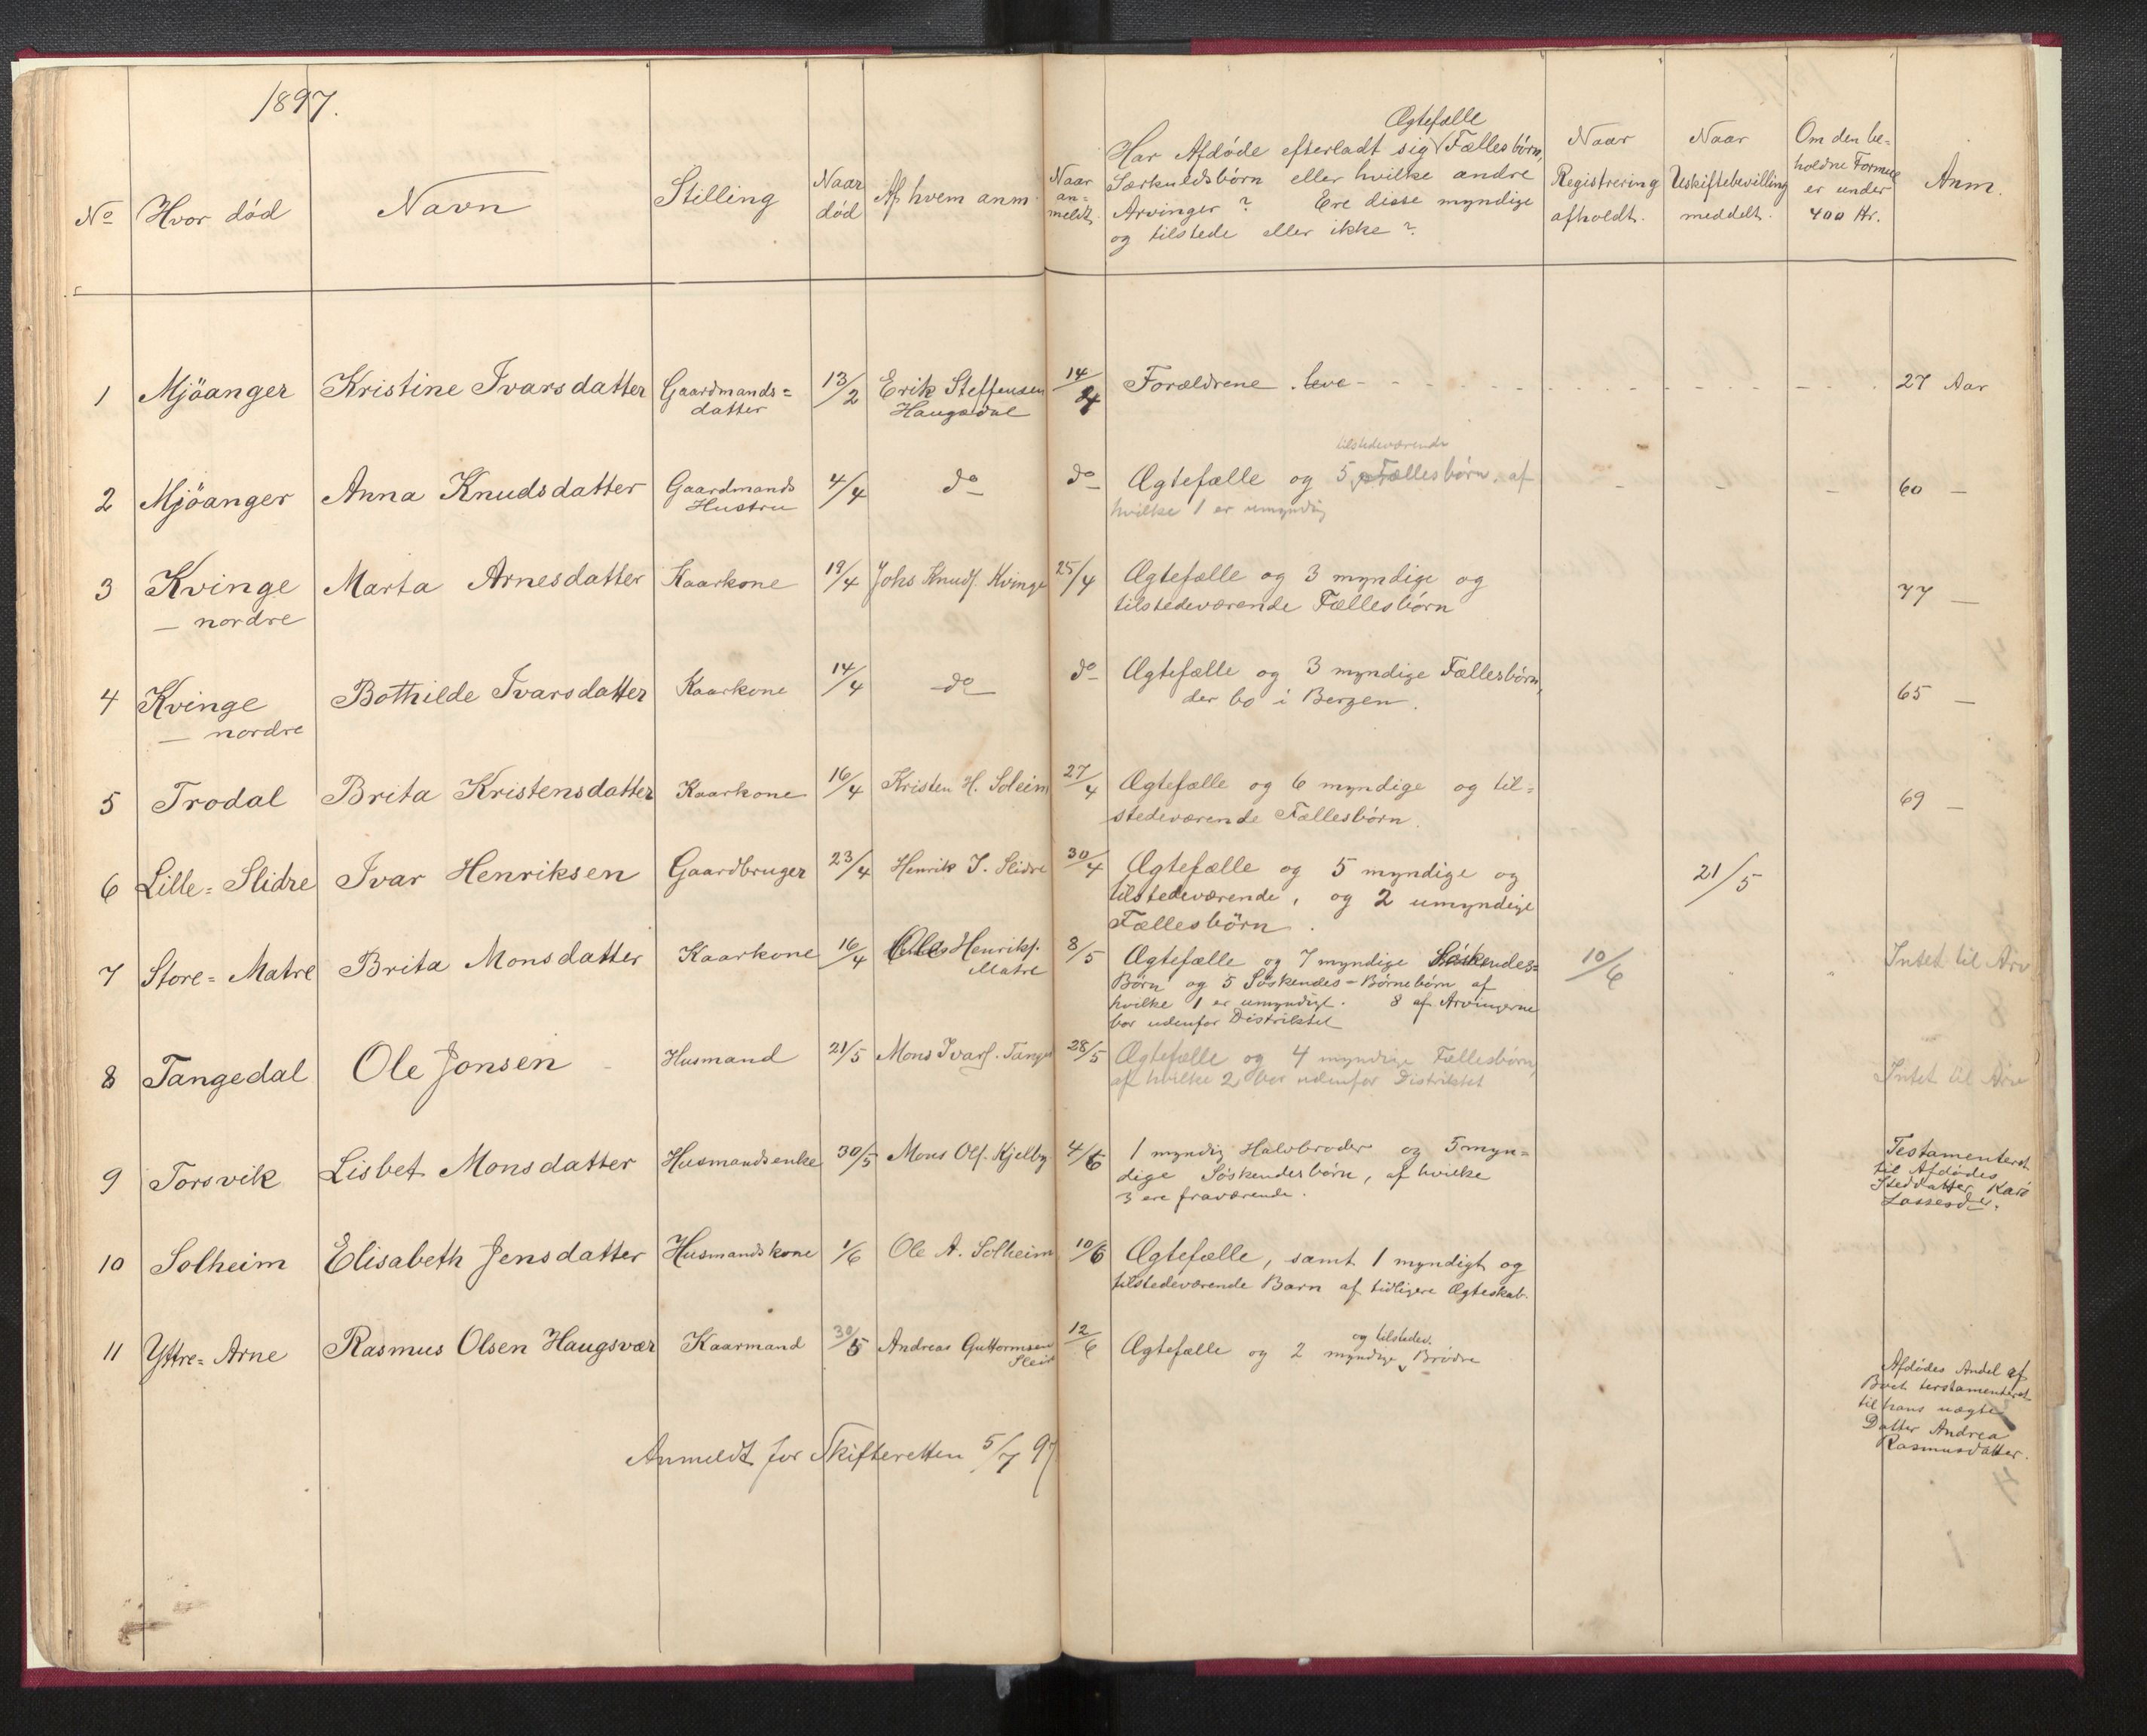 1897.
No Hvor död Navn Stilling Naar död Af hvem anm. Naar an= meldt.
Ægtefælle
Har Afdöde efterladt sig Fællesbörn,
Særkuldsbörn eller hvilke andre
Arvinger? Ere disse myndige
og tilstede eller ikke?
Naar Registrering afholdt. Naar Uskiftebevilling meddelt. Om den be= holdne Formue er under 400 Kr. Anm.
1 Mjöanger Kristine Ivarsdatter Gaardmands= 13/2 Erik Steffensen 14/4 Forældrene leve - - - 27 Aar
datter Haugsdal
tilstedeværende
2 Mjöanger Anna Knudsdatter Gaardmands 4/4 do do Ægtefælle og 5 Fællesbörn, af - - - 60 —
Hustru hvilke 1 er umyndig
3 Kvinge Marta Arnesdatter Kaarkone 13/4 Johs Knuds. Kvinge 25/4 Ægtefælle og 3 myndige og 77 —
— nordre tilstedeværende Fællesbörn
4 Kvinge Bothilde Ivarsdatter Kaarkone 14/4 do do Ægtefælle og 3 myndige Fællesbörn, 65 —
— nordre der bo i Bergen.
5 Trodal Brita Kristensdatter Kaarkone 16/4 Kristen H. Soleim 27/4 Ægtefælle og 6 myndige og til= 69 —
stedeværende Fællesbörn.
6 Lille= Slidre Ivar Henriksen Gaardbruger 23/4 Henrik I. Slidre 30/4 Ægtefælle og 5 myndige og 21/5
tilstedeværende, og 2 umyndige
Fællesbörn.
7 Store= Matre Brita Monsdatter Kaarkone 16/4 Ole Henriks. 8/5 Ægtefælle og 7 myndige Söskendes= 10/6 Intet til Arv
Matre Börn og 5 Söskendes-Börnebörn af
hvilke 1 er umyndigt. 8 af Arvingerne
bor udenfor Distriktet
8 Tangedal Ole Jonsen Husmand 21/5 Mons Ivars. 28/5 Ægtefælle og 4 myndige Fællesbörn, Intet til Arv
af hvilke 2 bor udenfor Distriktet
9 Torsvik Lisbet Monsdatter Husmandsenke 30/5 Mons Ols. Kjelby 4/6 1 myndig Halvbroder og 5 myn= Testamenteret
dige Söskendesbörn, af hvilke til Afdödes
3 ere fraværende. Steddatter Kari
Lassesdr.
10 Solheim Elisabeth Jensdatter Husmandskone 1/6 Ole A. Solheim 10/6 Ægtefælle, samt 1 myndigt og
tilstedeværende Barn af tidligere Ægteskab.
og tilstedev.
11 Yttre= Arne Rasmus Olsen Haugsvær Kaarmand 30/5 Andreas Guttormsen 12/6 Ægtefælle og 2 myndige Brödre
Afdödes Andel af
Boet testamenteret
til hans uægte
Datter Andrea
Rasmusdatter.
Anmeldt for Skifteretten 5/7 97